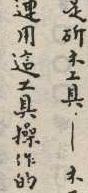 是斫木工具——木
運用這工具操作的